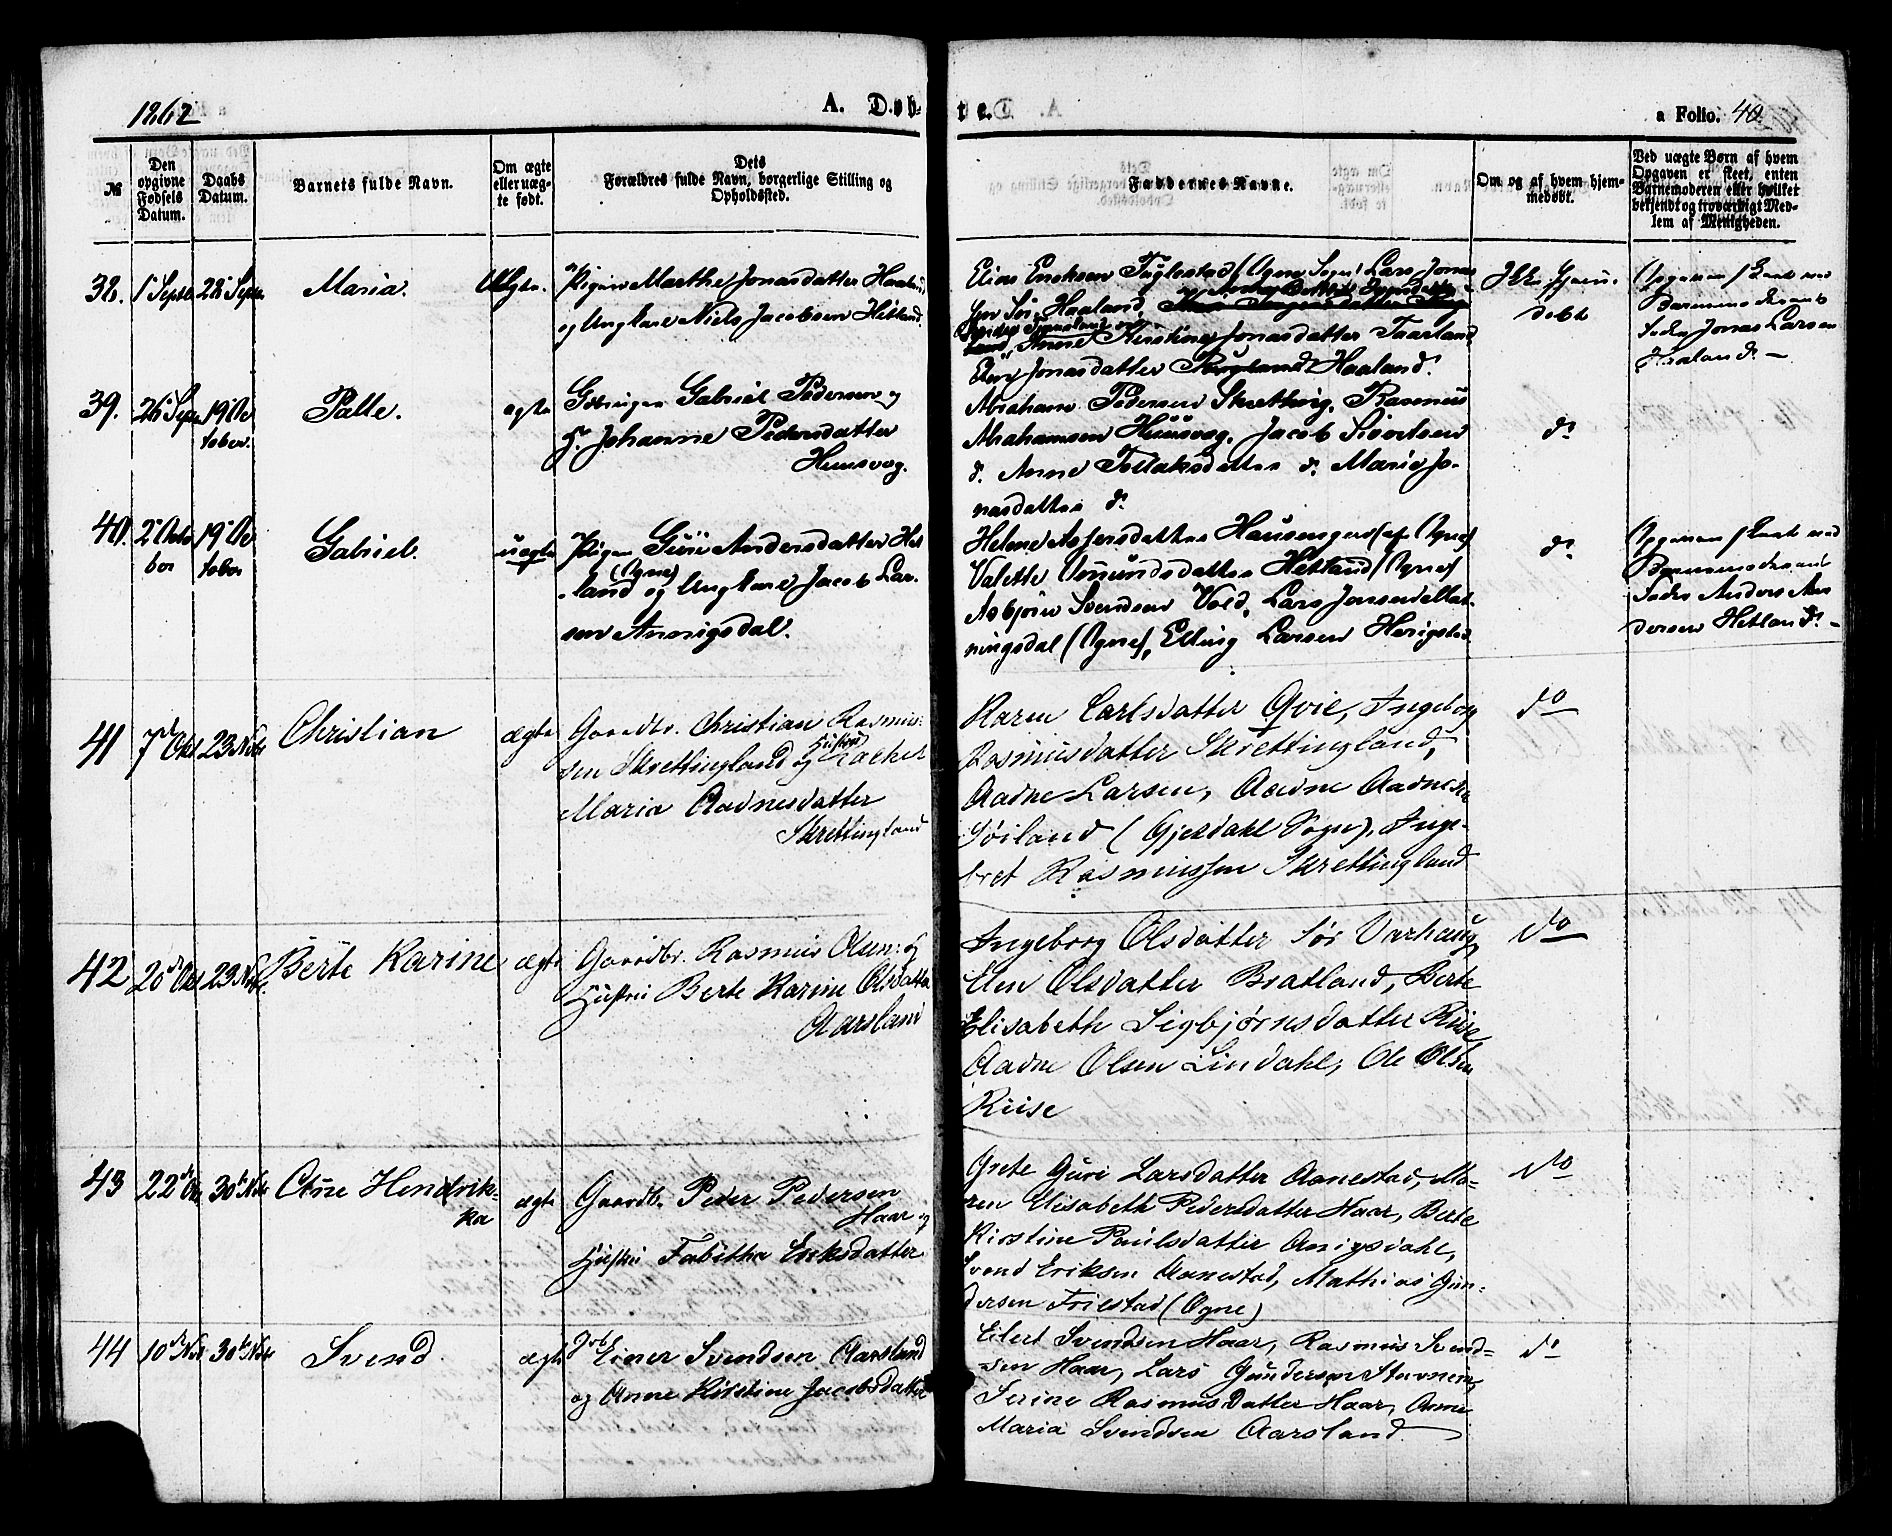 1862
A. Døb-
te.
a Folio. 40
№
Den
opgivne
Fødsels
Datum.
Daabs
Datum.
Barnets fulde Navn.
Om ægte
eller uæg-
te født.
Dets
Forældres fulde Navn, borgerlige Stilling og
Opholdssted.
Faddernes Navne.
Om og af hvem hjem-
medøbt.
Ved uægte Børn af hvem
Opgaven er skeet, enten
Barnemoderen eller hvilket
bekjendt og troværdigt Med-
lem af Menigheden.
38.
1 Septe
28 Septe
Maria.
Uægte.
Pigen Marthe Jonasdatter Haaland
og Ungkarl Niels Jacobsen Hetland.
Elias Eriksen Fuglestad (Ogne Sogn) Lars Jonas
sen Sør Haaland,
Anne Kirstine Jonasdatter Taarland
Elen Jonasdatter Haaland.
Ikke hjem-
debt
Opgaven skeet ved
Barnemoderens
Fader Jonas Larsen
Haaland.
39.
26 Septe
19 Oc
tober.
Palle.
ægte
Gabriel Pedersen og
H. Johanne Pedersdatter
Huusvog.
Abraham Pedersen Skretting, Rasmus
Abrahamsen Huusvog, Jacob Sivertsen
do. Anne Tollaksdatter do. Maria Jo-
nasdatter do
do
40.
2 Octo
ber
19 Oc
tober
Gabriel.
uægte
Pigen Guri Andersdatter Het
land (Ogne) og Ungkarl Jacob Lar-
sen Annigsdal.
Helene Asgersdatter (af Ogne)
Valette Omundsdatter Hetland (Ogne)
Asbjørn Svendsen Vold, Lars Jensen Mat-
ningsdal (Ogne), Elling Larsen Herigstad
do
Opgaven skeet ved
Barnemoderens
Fader Anders An
dersen Hetland.
41
7d Oct
23 Nov
Christian
ægte
Gaardbr. Christian Rasmus-
sen Skrettingland og Hustru Rachel
Maria Aadnesdatter
Skrettingland
Karen Carlsdatter Qvie, Ingeborg
Rasmusdatter Skrettingland,
Aadne Larsen, Aadne Aadnesen
Søiland (Gjesdahl Sogn), Inge-
bret Rasmussen Skrettingland
do
42
20d Oct
23 Nov
Berte Karine
ægte
Gaardbr. Rasmus Olsen og
Hustru Berte Karine Olsdatter
Aarsland
Ingeborg Olsdatter Sør Varhaug,
Elen Olsdatter Bratland, Berte
Elisabeth Sigbjørnsdatter Riise
Aadne Olsen Lindahl, Ole Olsen
Riise
do
43
22d Oct
30te Nov
Ane Hendrik-
ka
ægte
Gaardbr. Peder Pedersen
Haar og
Hustru Tabitha Eriksdatter
Grete Guri Larsdatter Aanestad, Ma-
ren Elisabeth Pedersdatter Haar, Berte
Kirstine Poulsdatter Anigsdahl,
Svend Eriksen Aanestad, Mathias Gun-
dersen Friestad (Ogne)
do
44
10de Nov
30te Nov
Svend
ægte
Gdbr. Einer Svendsen Aarsland
og Anne Kirstine Jacobsdatter
Eilert Svendsen Haar, Rasmus Svend-
sen Haar, Lars Gundersen Stavnem,
Serine Rasmusdatter Haar, Anne
Maria Svendsen Aarsland
do